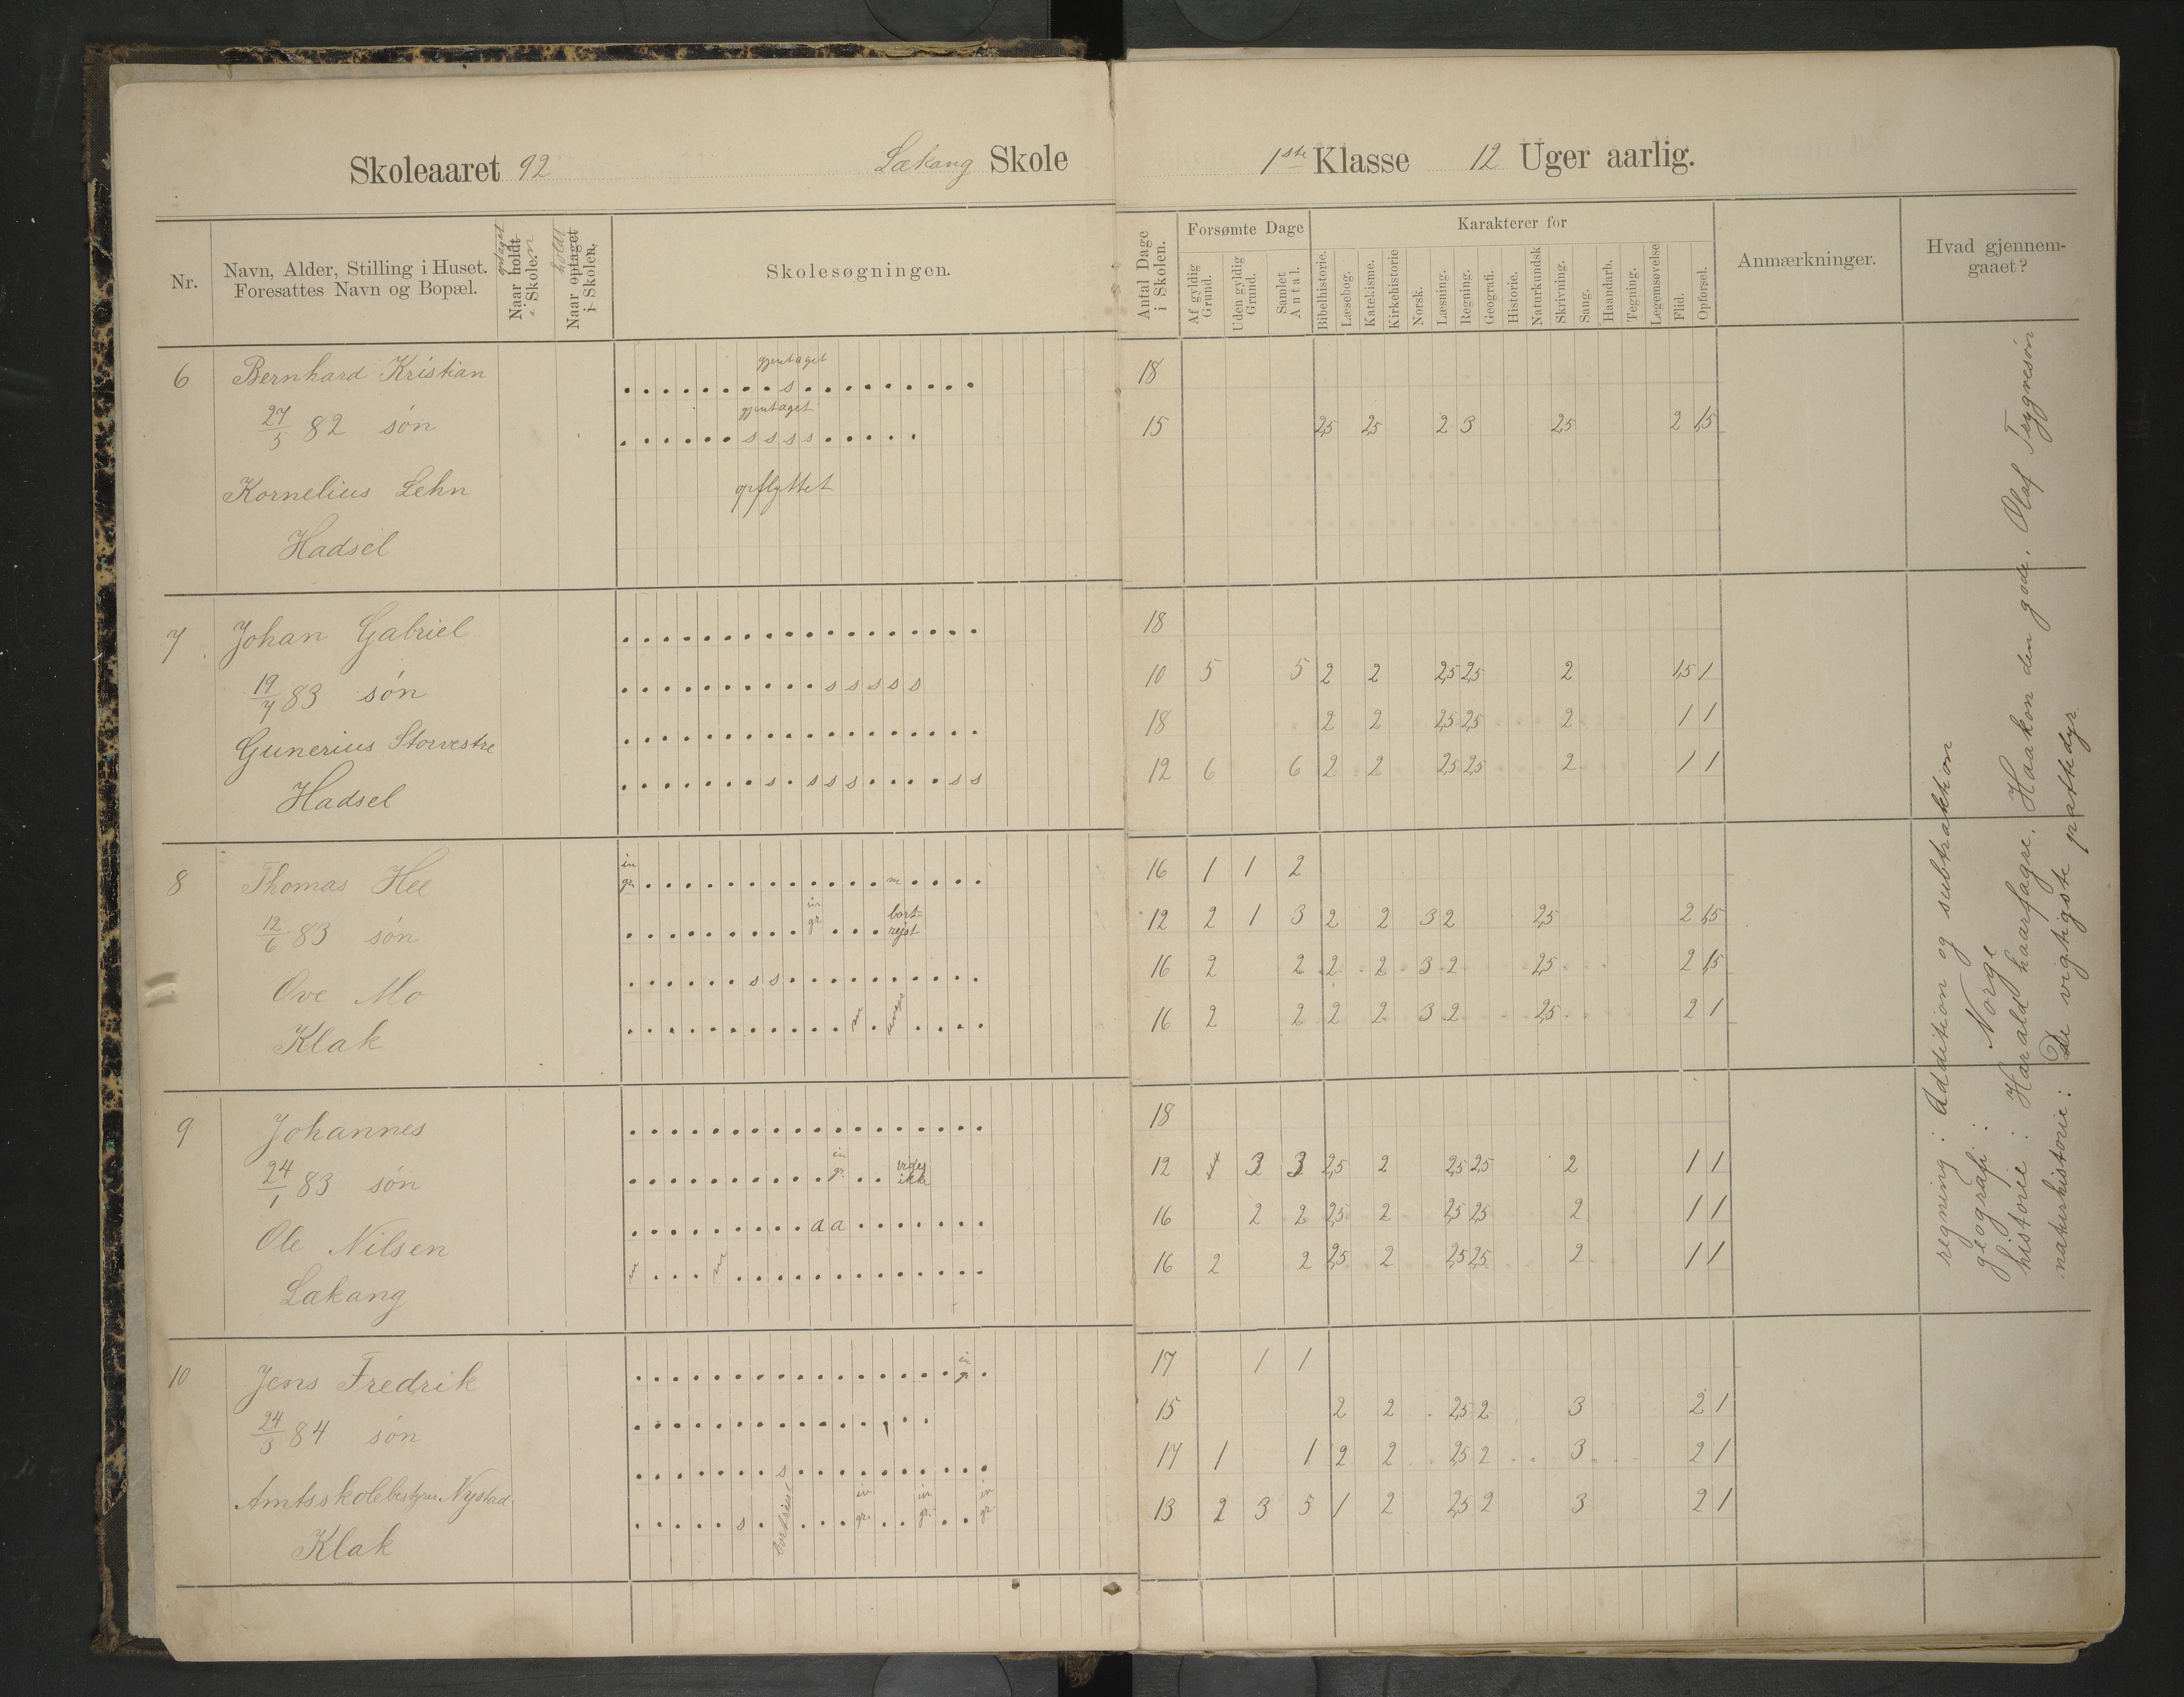 Skoleaaret 92 Lækang Skole 1ste Klasse 12 Uger aarlig.
Nr.
Navn, Alder, Stilling i Huset.
Foresattes Navn og Bopæl.
optaget
Naar holdt
i Skolen
holdt
Naar optaget
i Skolen.
Skolesøgningen.
Antal Dage
i Skolen.
Forsømte Dage
Af gyldig
Grund.
Uden gyldig
Grund.
Samlet
Antal.
Karakterer for
Bibelhistorie.
Læsebog.
Katekisme.
Kirkehistorie
Norsk.
Læsning.
Regning.
Geografi.
Historie.
Naturkundsk
Skrivning.
Sang.
Haandarb.
Tegning.
Legemsøvelse
Flid.
Opførsel.
Anmærkninger.
Hvad gjennem-
gaaet?
6 Bernhard Kristian gjentaget s 18
27/5 82 søn gjentaget s s s s 15 2,5 2,5 2 3 2,5 2 1,5
Kornelius Lehn opflyttet
Hadsel
7 Johan Gabriel 18
19/7 83 søn s s s s s 10 5 5 2 2 2,5 2,5 2 1,5 1
Gunerius Storvestre 18 2 2 2,5 2,5 2 1 1
Hadsel s s s s s s 12 6 6 2 2 2,5 2,5 2 1 1
8 Thomas Hee in gr. m 16 1 1 2
12/6 83 søn in gr. bort=
rejst 12 2 1 3 2 2 3 2 2,5 2 1,5
Ove Mo s s 16 2 2 2 2 3 2 2,5 2 1,5
Klak m 16 2 2 2 2 3 2 2,5 2 1
9 Johannes 18
24/1 83 søn in gr. vides
ikke 12 3 3 2,5 2 2,5 2,5 2 1 1
Ole Nilsen a a 16 2 2 2,5 2 2,5 2,5 2 1 1
Lækang m m 16 2 2 2,5 2 2,5 2,5 2 1 1
10 Jens Fredrik in gr. 17 1 1
24/3 84 søn 15 2 2 2,5 2 3 2 1
Amtsskolebestyrer Nystad s 17 1 1 2 2 2,5 2 3 2 1
Klak s in gr. in gr. in gr. 13 2 3 5 1 2 2,5 2 3 2 1
regning: Addition og subtraktion
geografi: Norge
historie: Harald haarfagre. Haakon den gode. Olaf Trygvesøn
naturhistorie: De vigtigste pattedyr